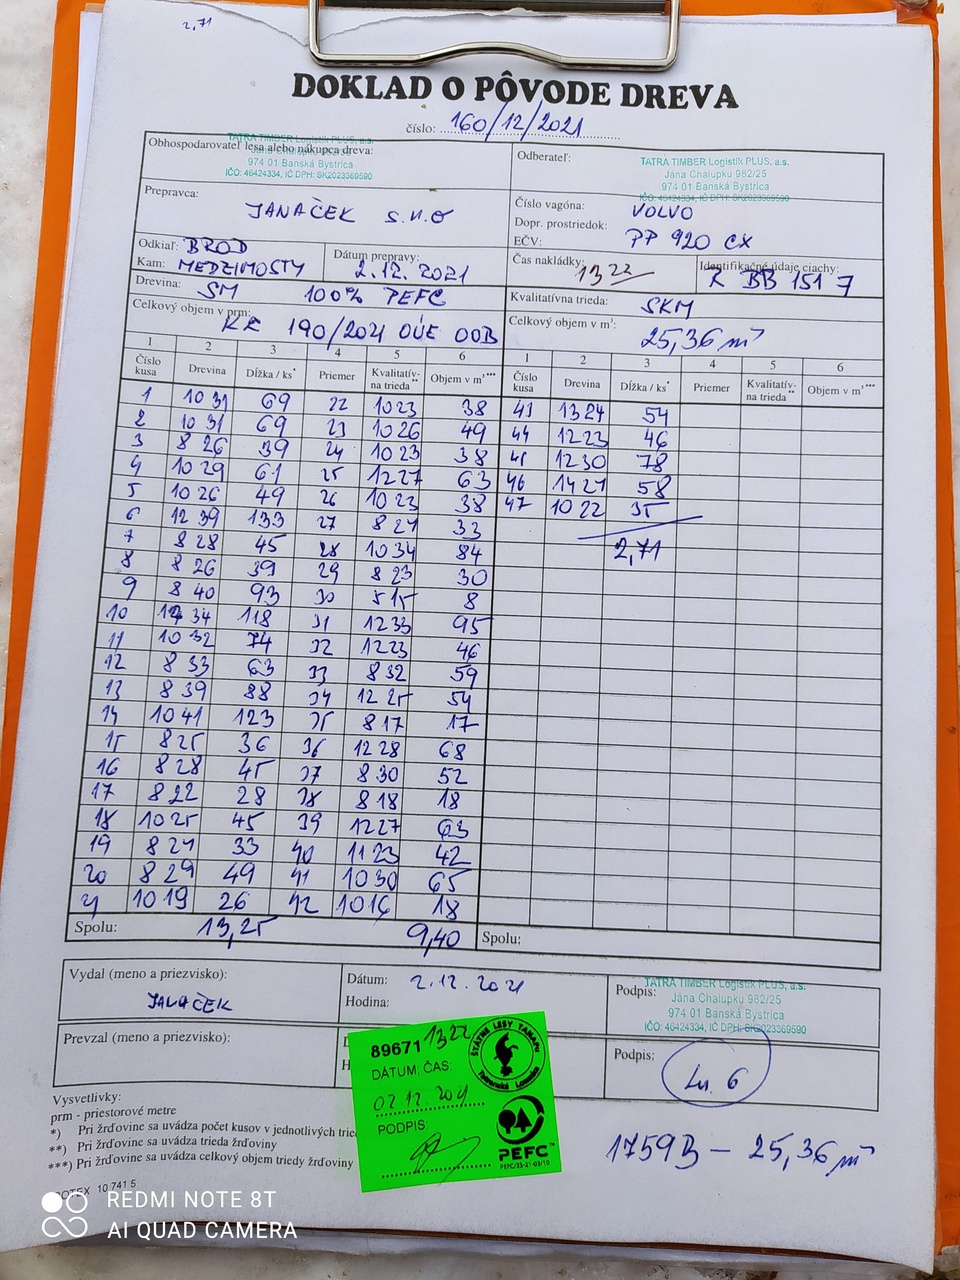 2,71
DOKLAD O PÔVODE DREVA
číslo: 160/12/2021
Obhospodarovateľ lesa alebo nákupca dreva:
TATRA TIMBER Logistik PLUS, a.s.
Jána Chalupku 982/25
974 01 Banská Bystrica
IČO: 46424334, IČ DPH: SK2023369590
Odberateľ:
TATRA TIMBER Logistik PLUS, a.s.
Jána Chalupku 982/25
974 01 Banská Bystrica
IČO: 46424334, IČ DPH: SK2023369590
Prepravca:
JANAČEK s.r.o
Číslo vagóna: VOLVO
Dopr. prostriedok:
EČV: PP 920 CX
Odkiaľ: BROD
Kam: MEDZIMOSTY
Dátum prepravy:
2.12.2021
Čas nakládky: 13 22
Identifikačné údaje ciachy:
K BB 151 7
Drevina: SM 100% PEFC
Kvalitatívna trieda: SKM
Celkový objem v prm:
190/2021 OÚE OOB
Celkový objem v m³: 25,36 m³
1 2 3 4 5 6 1 2 3 4 5 6
Číslo kusa Drevina Dĺžka / ks* Priemer Kvalitatív-na trieda** Objem v m³*** Číslo kusa Drevina Dĺžka / ks* Priemer Kvalitatív-na trieda** Objem v m³***
1 10 31 69 22 10 23 38 43 13 24 54
2 10 31 69 23 10 26 49 44 12 23 46
3 8 26 39 24 10 23 38 45 12 30 78
4 10 29 61 25 12 27 63 46 14 21 58
5 10 26 49 26 10 23 38 47 10 22 35
6 12 39 133 27 8 24 33
7 8 28 45 28 10 34 84 2,71
8 8 26 39 29 8 23 30
9 8 40 93 30 5 15 8
10 34 118 31 12 33 95
11 10 32 74 32 12 23 46
12 8 33 63 33 8 32 59
13 8 39 88 34 12 25 54
14 10 41 123 35 8 17 17
15 8 25 36 36 12 28 68
16 8 28 45 37 8 30 52
17 8 22 28 38 8 18 18
18 10 25 45 39 12 27 63
19 8 24 33 40 11 23 42
20 8 29 49 41 10 30 65
21 10 19 26 42 10 16 18
Spolu: 13,25 9,40 Spolu:
Vydal (meno a priezvisko):
JANAČEK
Dátum: 2.12.2021
Hodina:
Podpis:
TATRA TIMBER Logistik PLUS, a.s.
Jána Chalupku 982/25
974 01 Banská Bystrica
IČO: 46424334, IČ DPH: SK2023369590
Prevzal (meno a priezvisko):
Podpis:
Lu. 6
89671 13 22
DÁTUM, ČAS:
02.12.2021
PODPIS:
ŠTÁTNE LESY TANAPu
Tatranská Lomnica
PEFC™
PEFC/23-21-03/10
Vysvetlivky:
prm - priestorové metre
*) Pri žrďovine sa uvádza počet kusov v jednotlivých
**) Pri žrďovine sa uvádza trieda žrďoviny
***) Pri žrďovine sa uvádza celkový objem triedy žrďoviny
1759B - 25,36 m³
10 741 5
REDMI NOTE 8T
AI QUAD CAMERA